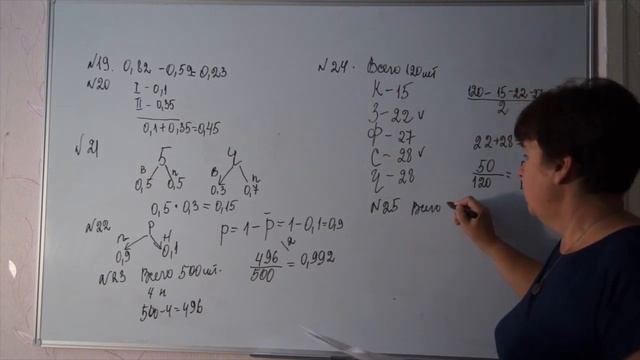 №19. 0,82 - 0,59 = 0,23
№20
I - 0,1
II - 0,35
0,1 + 0,35 = 0,45
№21
Б 4
в п в п
0,5 0,5 0,3 0,7
0,5 · 0,3 = 0,15
№22
P
п н
0,9 0,1
p = 1 - p̄ = 1 - 0,1 = 0,9
№23 Всего 500 шт.
4 н
500 - 4 = 496
496
500
= 0,992
№24. Всего 120 шт
К - 15
З - 22 v
Ф - 27
С - 28 v
Ч - 28
120 - 15 - 22 - 27
2
22 + 28 =
50
120
=
№25 Всего